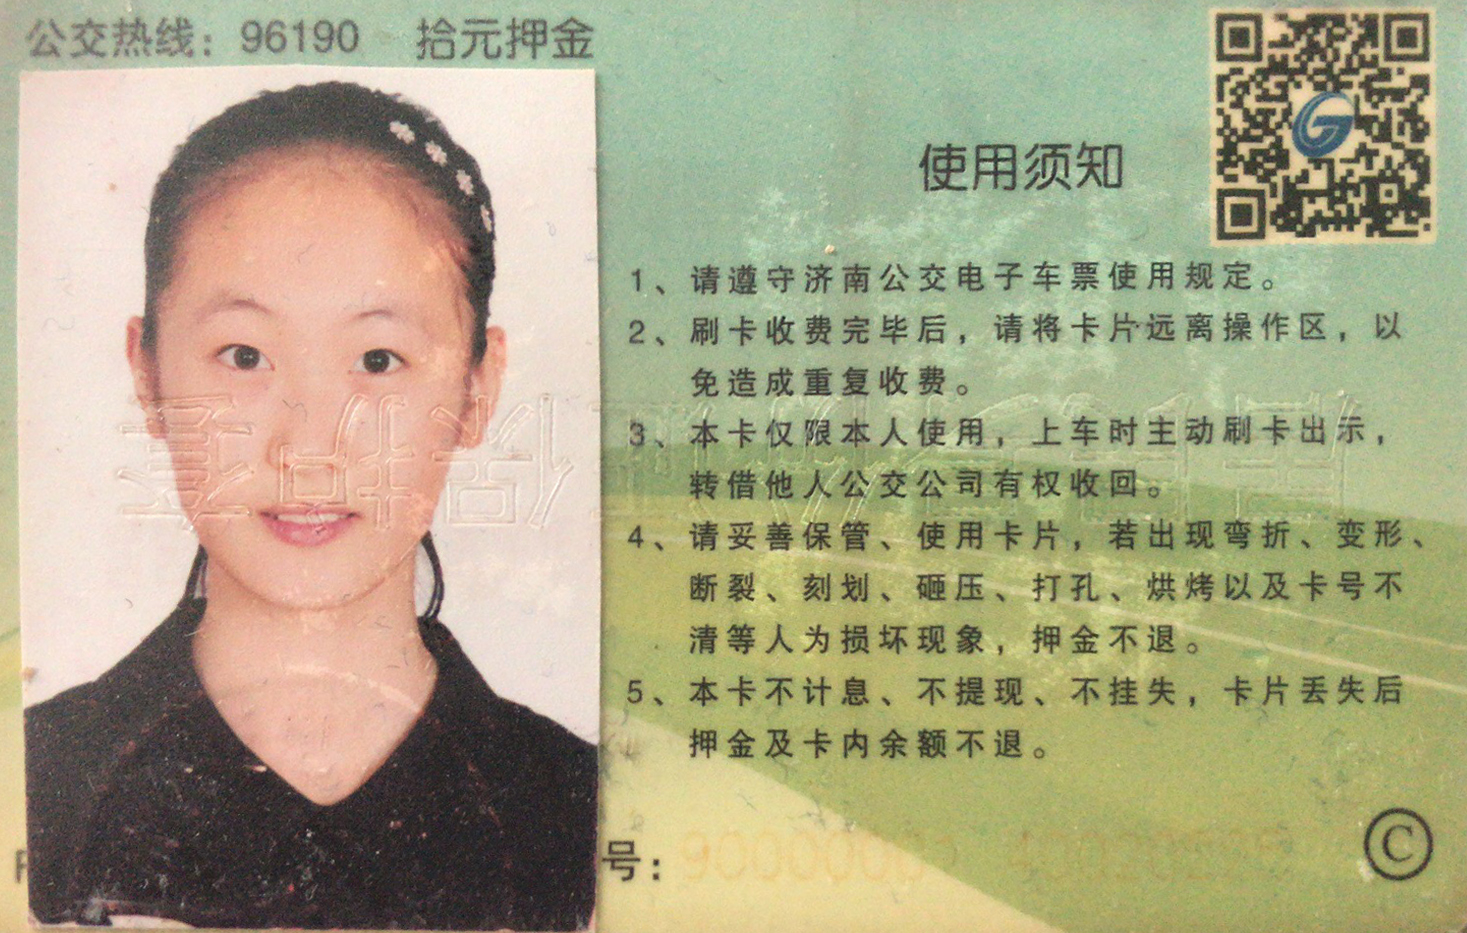 公交热线：96190 拾元押金
使用须知
1、请遵守济南公交电子车票使用规定。
2、刷卡收费完毕后，请将卡片远离操作区，以
免造成重复收费。
3、本卡仅限本人使用，上车时主动刷卡出示，
转借他人公交公司有权收回。
4、请妥善保管、使用卡片，若出现弯折、变形、
断裂、刻划、砸压、打孔、烘烤以及卡号不
清等人为损坏现象，押金不退。
5、本卡不计息、不提现、不挂失，卡片丢失后
押金及卡内余额不退。
号：
©